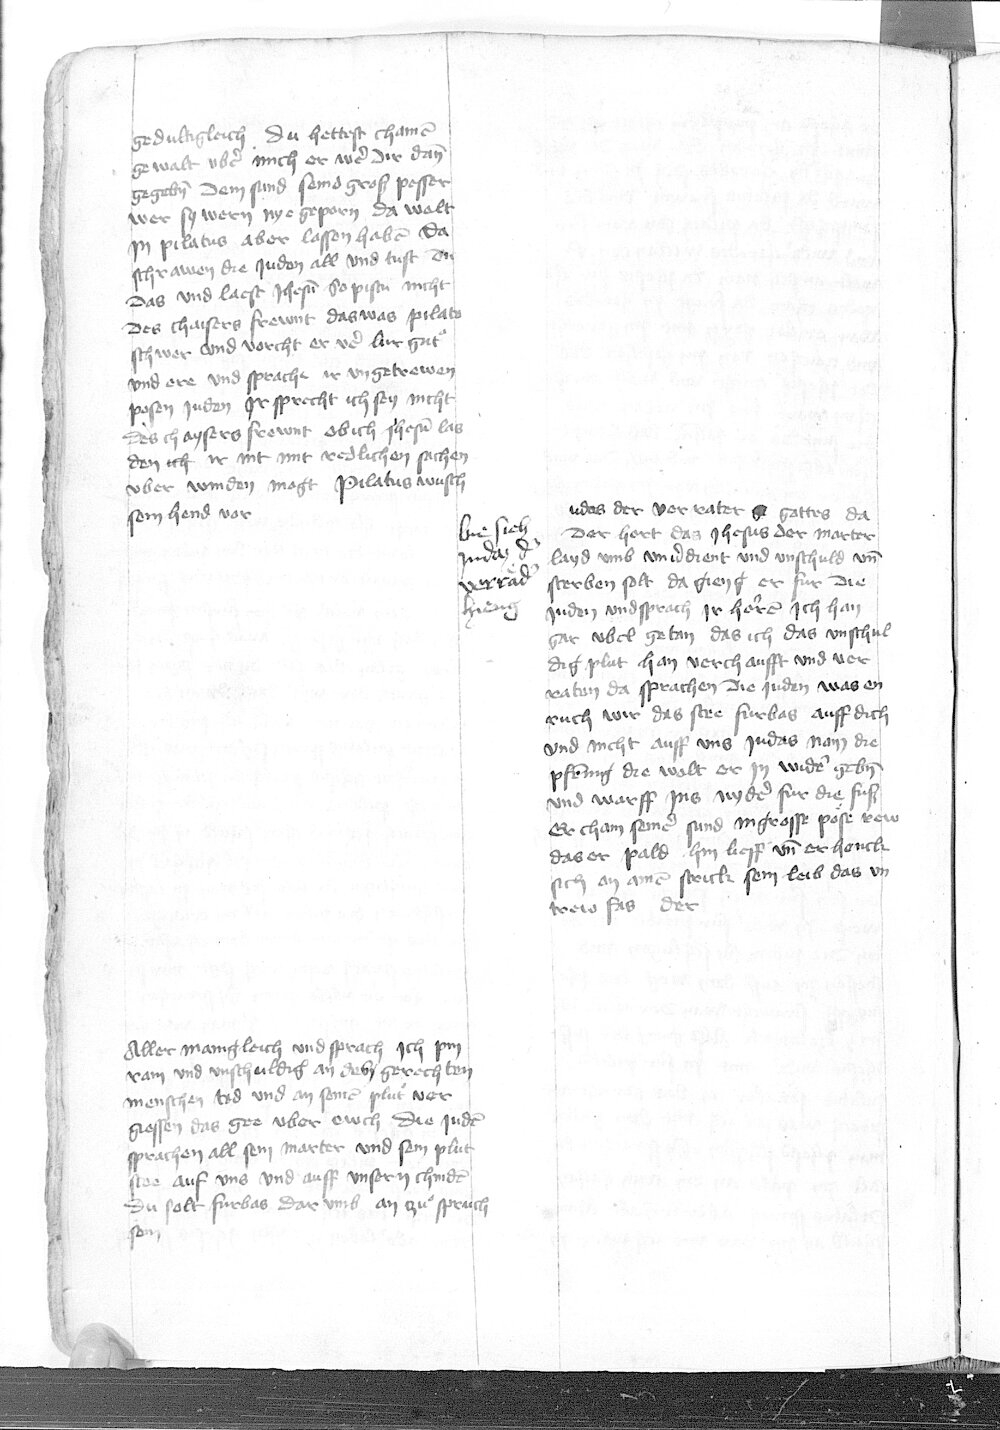 gedultigleich Du hettest chainē
gewalt vbeʳ mich er weʳ dir dan̄
gegebn̄ Dem sund seind groß pesser
wer sy wern nye geporn da wolt
In pilatus aber lassen habē Da
schrawen die Juden all vnd tust du
Das vnd laest Jhesū So pistu nicht
des chaisers frewnt das was pilato
schwer vnd vorcht er veʳ lur gut
vnd ere vnd sprach ir vngetrewen
posen Juden Ir sprecht ich sey nicht
des chaysers frewnt ob ich Jhesū las
den ich ir nit mit redlichen sachen
vber winden mogt Pilatus wusch
sein hend vor
Aller manigkleich vnd sprach Ich pin
rain vnd vnschuldig an des gerechten
menschen tod vnd an seinē plut ver
giessen das gee vber ewch Die Judē
sprachen all sein marter vnd sein plut
stee auf vns vnd auff vnsern chindē
Du solt furbas dar vmb an zu sprach
sein
Wie sich
Judas dʳ
verradʳ
hieng
udas der verrater gottes da
Der hort das Jhesus der marter
layd vmb vnuʳdient vnd vnschuld vn̄
sterben solt da gieng er fur die
Juden vnd sprach Ir herrē Ich han
gar vbel getan das ich das vnschul
dig plut han verchaufft vnd ver
raten da sprachen die Juden was en
ruch wir das stee furbas auff dich
vnd nicht auff vns Judas nam die
pfēnig die wolt er In wideʳ gebn̄
vnd warff Ins nydeʳ fur die fuß
Er cham seineʳ sund in grosse pöse rew
das er pald hin lieff vn̄ erhenck
sich an ainē strick sein leib das vn
trew fas der